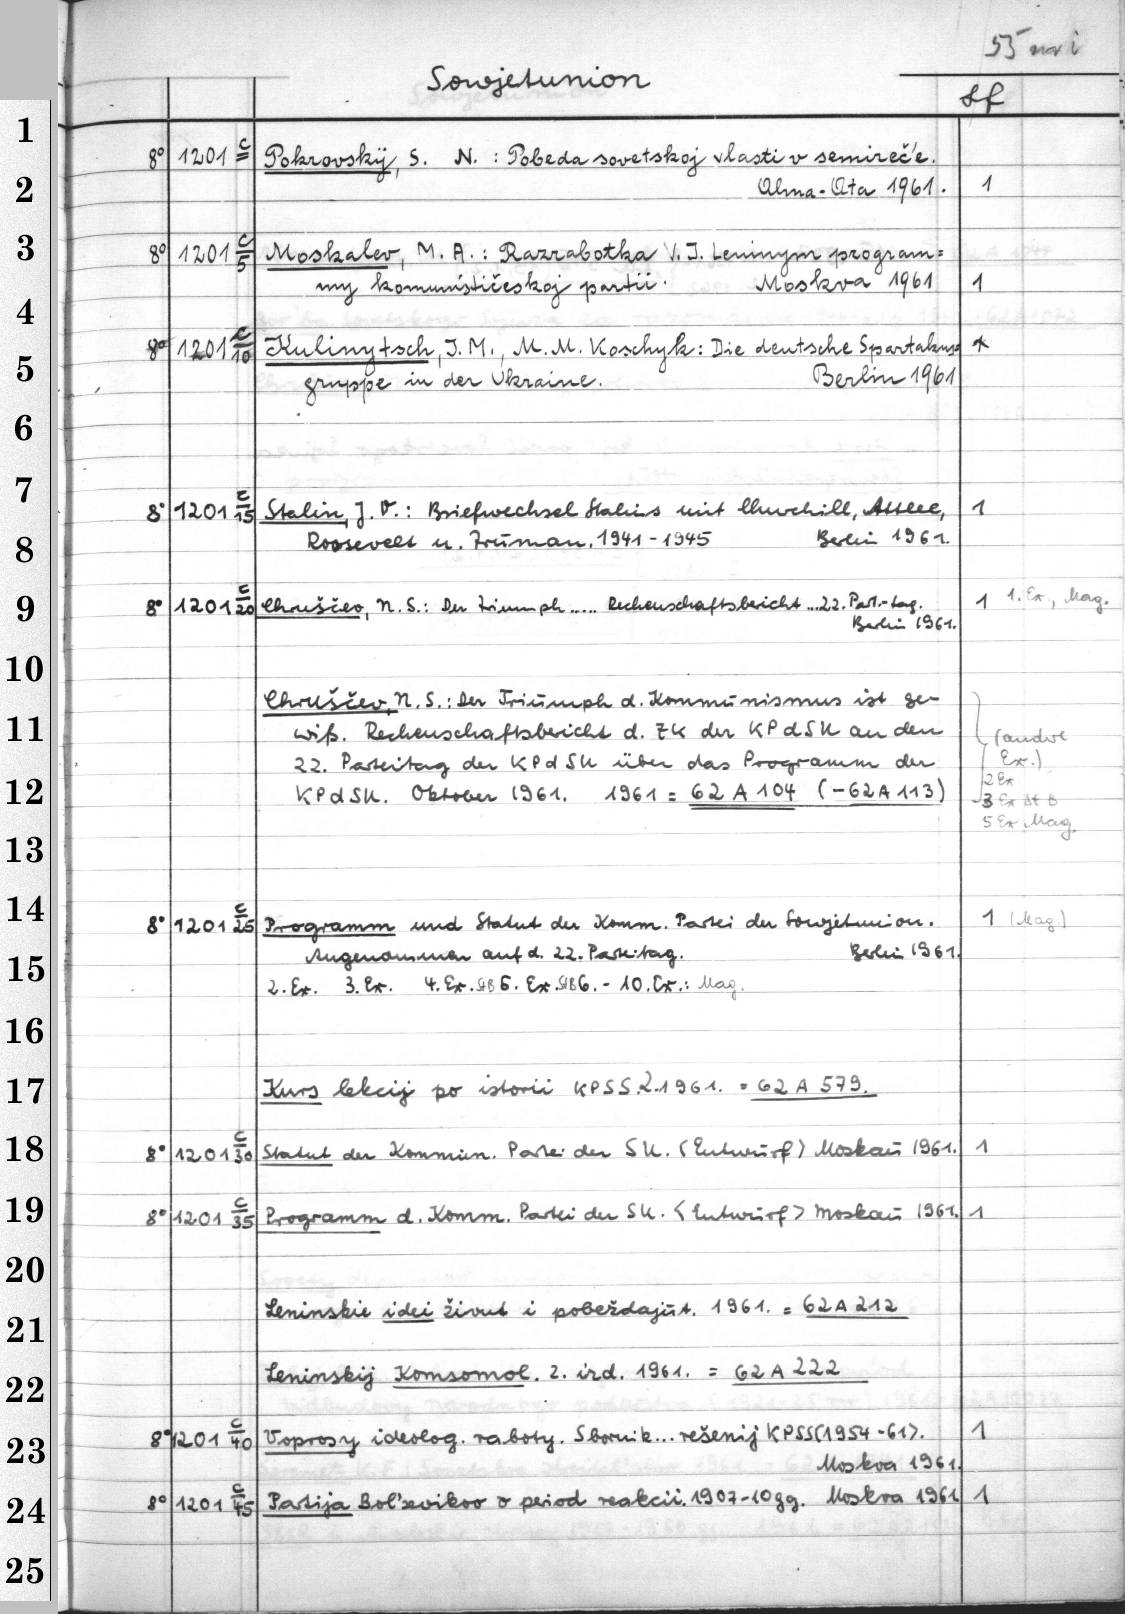 55
Sowjetunion
Sf
1
8° 1201 c Pokrovskij, S. N. : Pobeda sovetskoj vlasti v semireč'e.
2
Alma-Ata 1961. 1
3
8° 1201 c/5 Moskalev, M. A. : Razrabotka V. I. Leninym program=
my komunističeskoj partii. Moskva 1961 1
4
8° 1201 c/10 Kulinytsch, I. M., M. M. Koschyk: Die deutsche Spartakus=
5
gruppe in der Ukraine. Berlin 1961
6
7
8° 1201 c/15 Stalin, J. V. : Briefwechsel Stalins mit Churchill, Attlee, 1
8
Roosevelt u. Truman. 1941-1945 Berlin 1961.
9
8° 1201 c/20 Chruščev, N. S.: Der Triumph ..... Rechenschaftsbericht ... 22. Part.-tag. 1 1. Ex., Mag.
Berlin 1961.
10
Chruščev, N. S.: Der Triumph d. Kommunismus ist ge-
11
wiß. Rechenschaftsbericht d. ZK der KPdSU an den (andre
22. Parteitag der KPdSU über das Programm der Ex.)
2 Ex
12
KPdSU. Oktober 1961. 1961 = 62 A 104 (-62A113)
3 Ex St B
5 Ex Mag.
13
14
8° 1201 c/25 Programm und Statut der Komm. Partei der Sowjetunion. 1 (Mag.)
15
Angenommen auf d. 22. Parteitag. Berlin 1961.
2. Ex. 3. Ex. 4. Ex. StB 5. Ex. StB 6. - 10. Ex.: Mag.
16
17
Kurs lekcij po istorii KPSS. 2. 1961. = 62 A 579.
18
8° 1201 c/30 Statut der Kommun. Partei der SU. (Entwurf) Moskau 1961. 1
19
8° 1201 c/35 Programm d. Komm. Partei der SU. <Entwurf> Moskau 1961. 1
20
Leninskie idei živut i pobeždajut. 1961. = 62A212
21
22
Leninskij Komsomol. 2. izd. 1961. = 62 A 222
23
8° 1201 c/40 Voprosy ideolog. raboty. Sbornik... rešenij KPSS (1954-61). 1
Moskva 1961.
24
8° 1201 c/45 Partija Bol'ševikov v period reakcii. 1907-10 gg. Moskva 1961 1
25